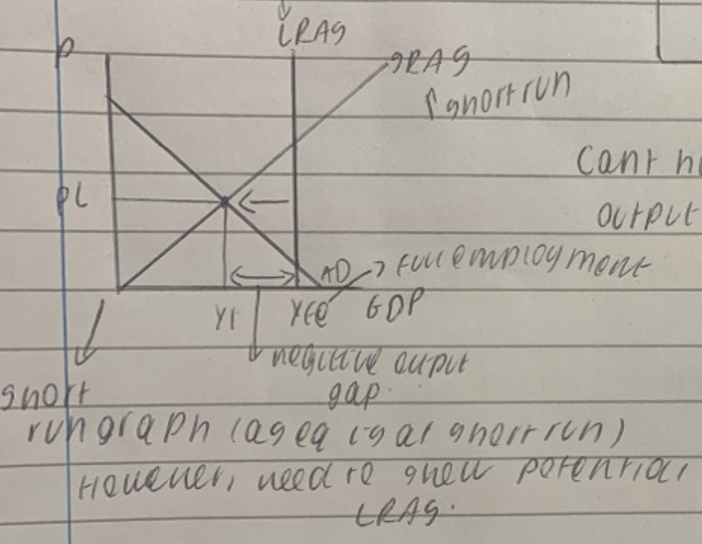 LRAS
P
SRAS
(short run
Cant h
PL
output
AD → full employment
Y1 YFE GDP
negative output
gap.
short
run graph (as eq is at short run)
However, need to show potential
LRAS.